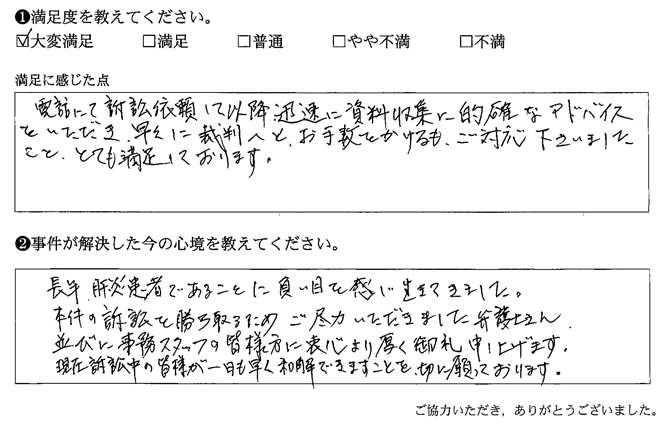 ❶満足度を教えてください。
☑大変満足 □満足 □普通 □やや不満 □不満
満足に感じた点
電話にて訴訟依頼して以降迅速に資料収集に的確なアドバイス
をいただき、早々に裁判へと、お手数をかけるも、ご対応下さいました
こと、とても満足しております。
❷事件が解決した今の心境を教えてください。
長年、肝炎患者であることに負い目を感じ生きてきました。
本件の訴訟を勝ち取るため ご尽力いただきました弁護士さん、
並びに事務スタッフの皆様方に衷心より厚く御礼申し上げます。
現在訴訟中の皆様が一日も早く和解できますことを、切に願っております。
ご協力いただき、ありがとうございました。